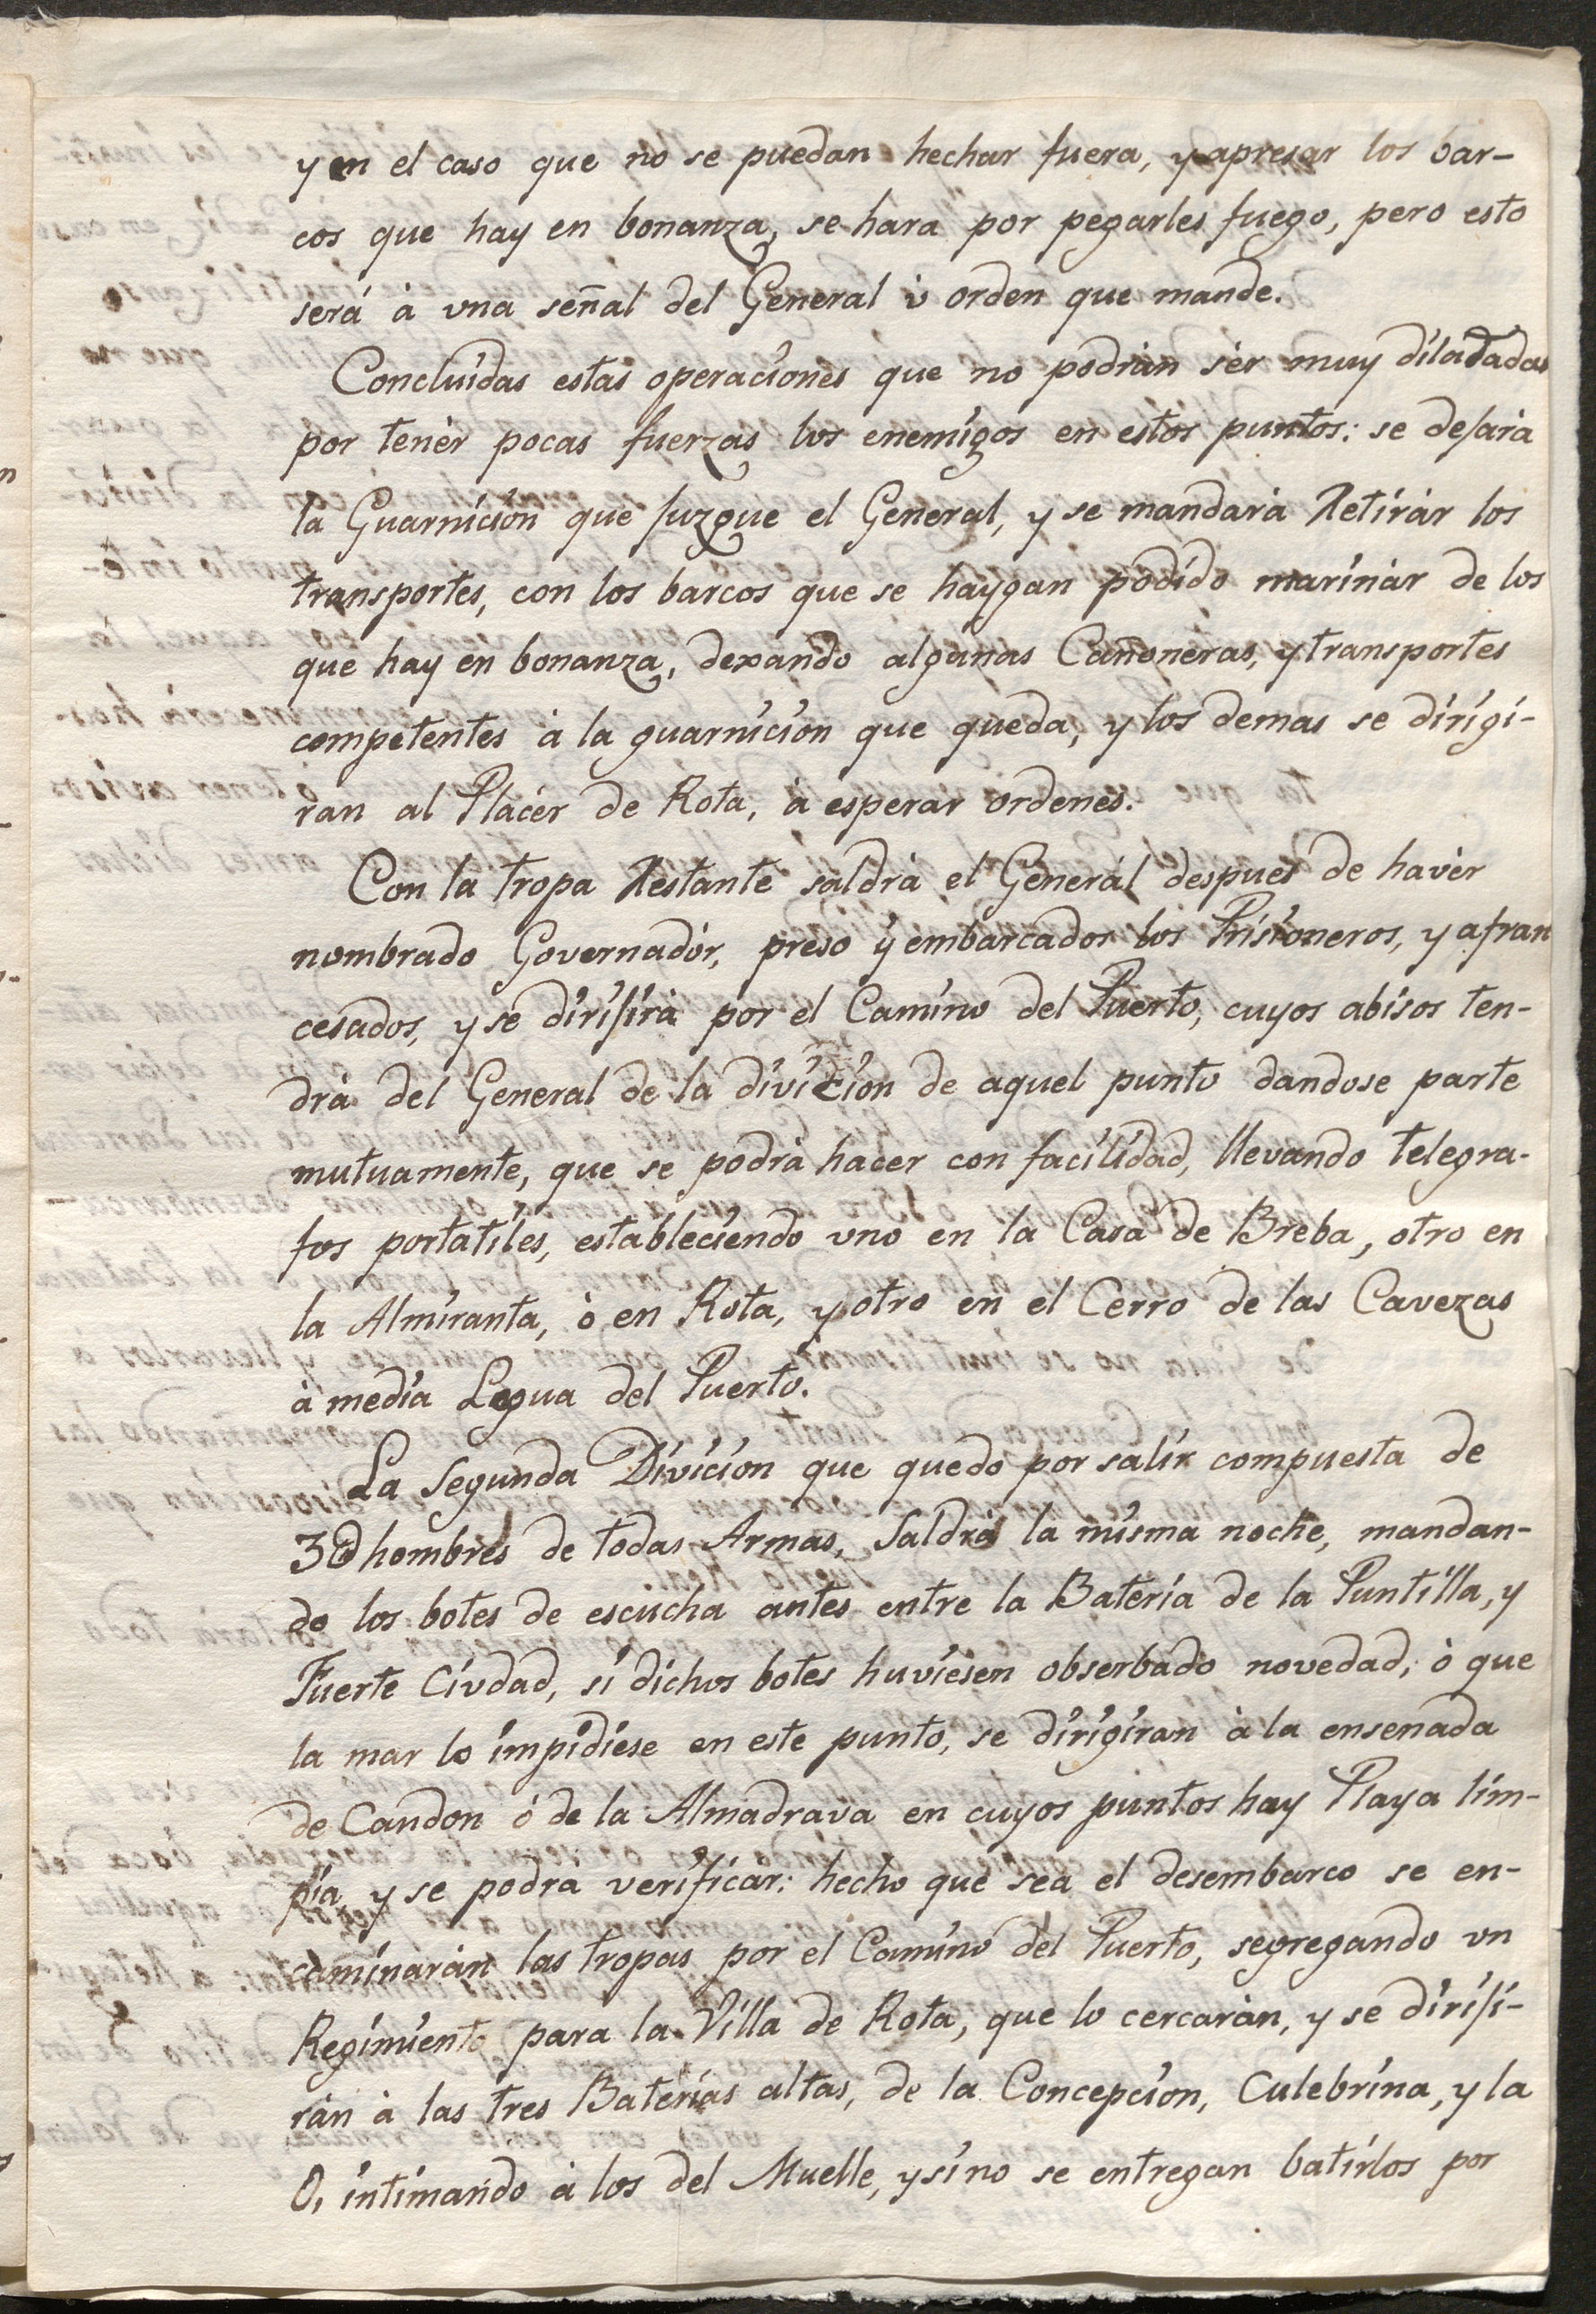 y en el caso que no se puedan hechar fuera, y apresar los bar-
cos que hay en bonanza, se hara por pegarles fuego, pero esto
será à vna señal del General ù orden que mande.
Concluidas estas operaciones que no podràn sèr muy diladadas
por tenèr pocas fuerzas los enemigos en estos puntos: se dejarà
la Guarnicion que juzgue el General, y se mandarà Retiràr los
transportes, con los barcos que se haygan podido marinàr de los
que hay en bonanza, dexando algunas Cañoneras, y transportes
competentes à la guarnicion que queda, y los demas se dirigi-
ran al Placèr de Rota, à esperar ordenes.
Con la tropa Restante saldrà el Generàl despues de havèr
nombrado Governadòr, preso y embarcados los Prisioneros, y afran
cesados, y se dirijirà por el Camino del Puerto, cuyos abisos ten-
drà del General de la divicion de aquel punto dandose parte
mutuamente, que se podrà hacer con facilidad, llevando telegra-
fos portatiles, estableciendo vno en la Casa de Breba, otro en
la Almiranta, ò en Rota, y otro en el Cerro de las Cavezas
à media Legua del Puerto.
La Segunda Divicion que quedo por salir compuesta de
3@ hombres de todas Armas, Saldrà la misma noche, mandan-
do los botes de escucha antes entre la Bateria de la Puntilla, y
Fuerte Civdad, si dichos botes huviesen obserbado novedad, ò que
la mar lo impidiese en este punto, se dirigiran à la ensenada
de Candon ò de la Almadrava en cuyos puntos hay Playa lim-
pia y se podrà verificar: hecho que sea el desembarco se en-
caminaràn las tropas por el Camino del Puerto, segregando vn
Regimiento para la Villa de Rota, que lo cercaràn, y se diriji-
ràn à las tres Baterias altas, de la Concepcion, Culebrina, y la
O, intimando à los del Muelle, y sino se entregan batirlos por